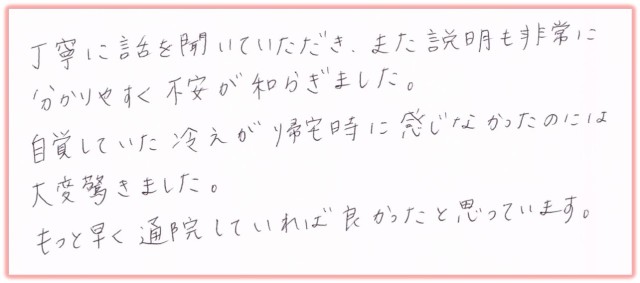 丁寧に話を聞いていただき、また説明も非常に
分かりやすく不安が和らぎました。
自覚していた冷えが帰宅時に感じなかったのには
大変驚きました。
もっと早く通院していれば良かったと思っています。